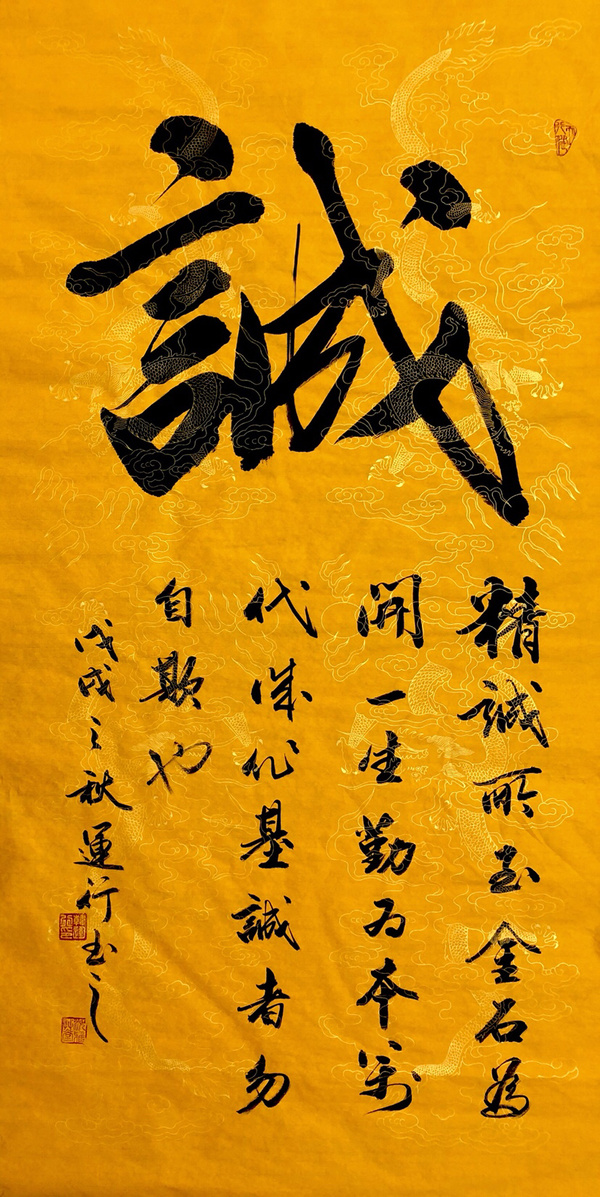 誠
精誠所至金石為
開一生勤為本萬
代誠作基誠者勿
自欺也
戊戌之秋運行書之